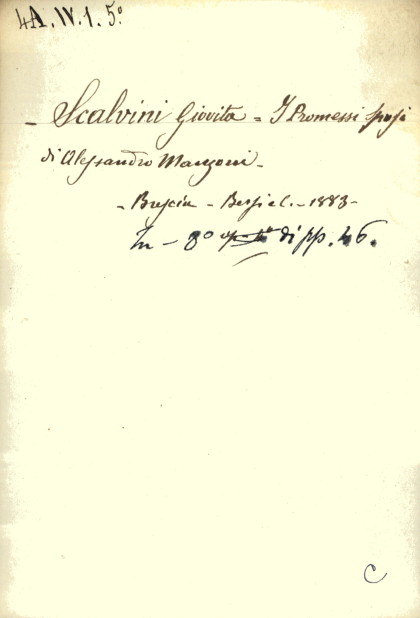 4A.IV.1.5º
- Scalvini Giovita = I Promessi sposi
di Alessandro Manzoni -
- Brescia - Bersi e C. - 1883 -
In - 8º di pp. 46.
C